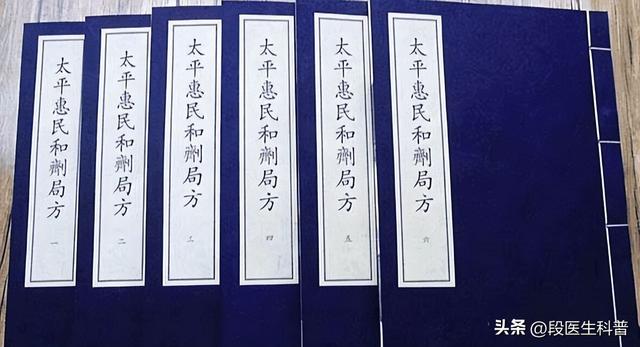 太平惠民和劑局方
一
太平惠民和劑局方
二
太平惠民和劑局方
三
太平惠民和劑局方
四
太平惠民和劑局方
五
太平惠民和劑局方
六
头条 @段医生科普